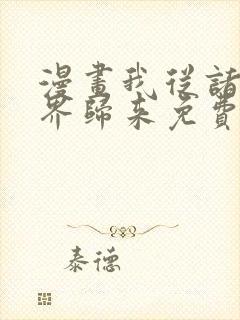 漫畫我從諸
界歸來免費
泰德